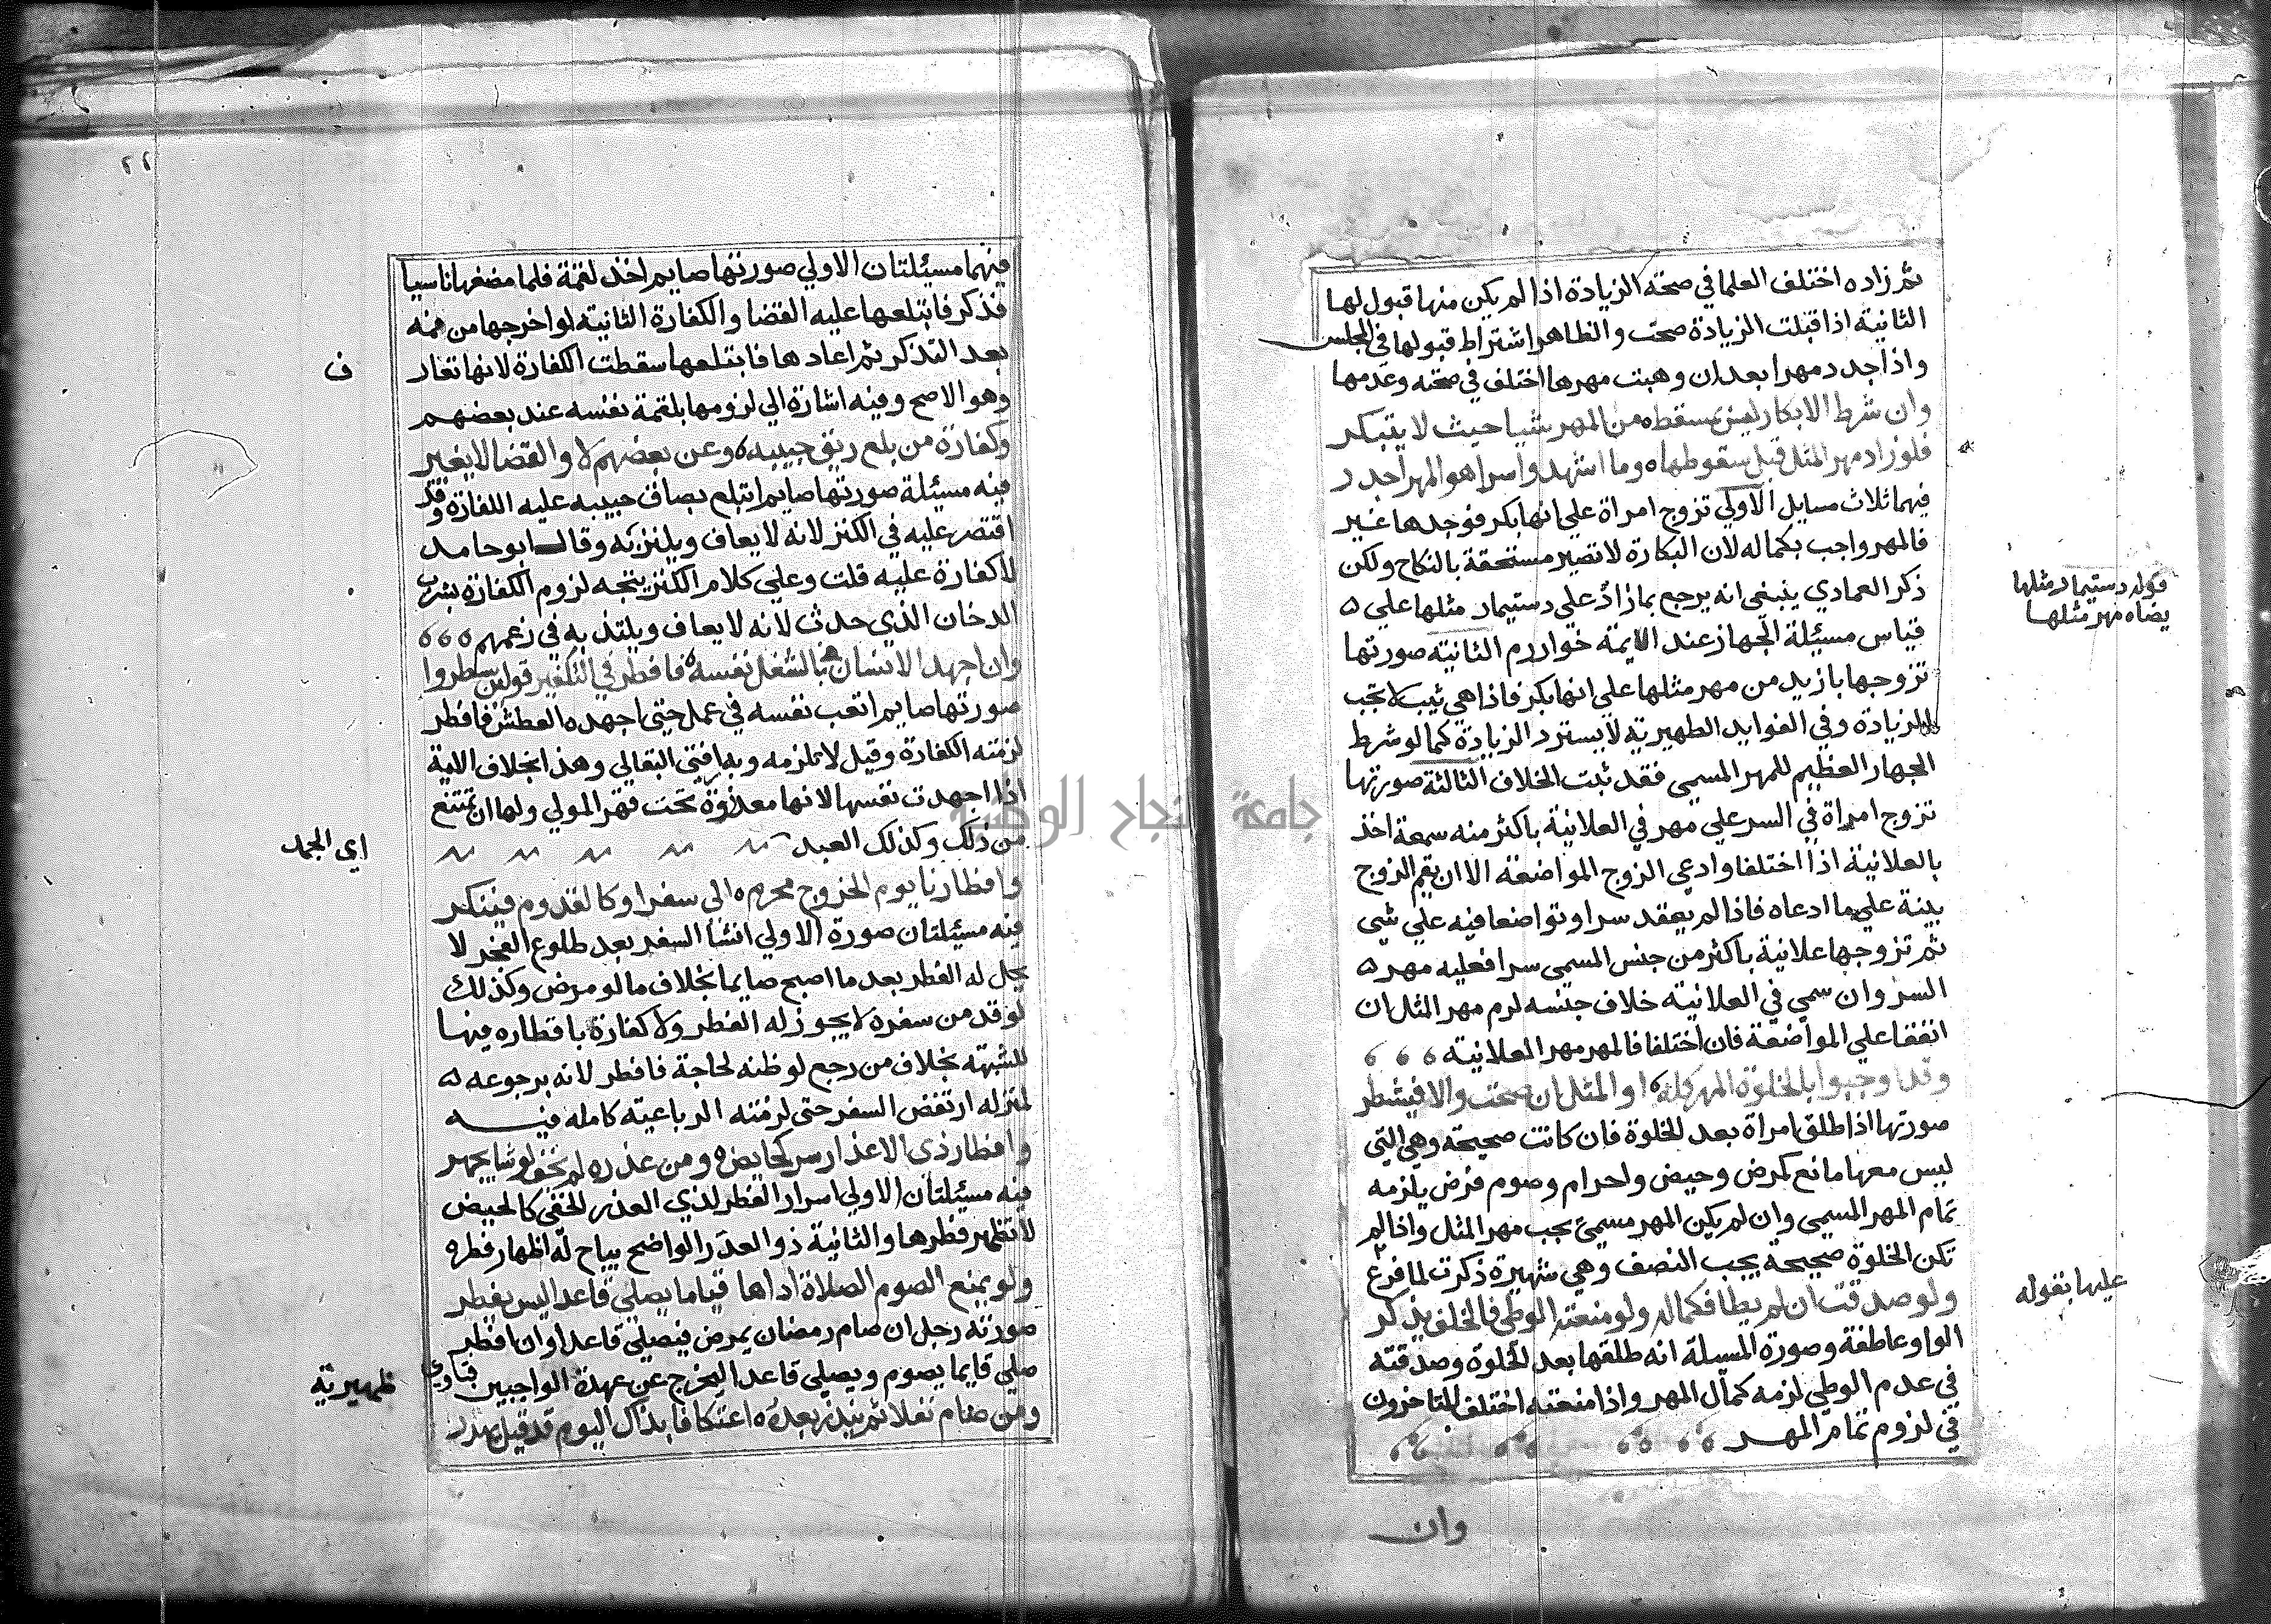 ثم زاده اختلف العلما في صحته الزيادة اذا لم يكن منها قبول لها
الثانية اذا قبلت الزيادة صحت والظاهر اشتراط قبولها في المجلس
واذا جدد مهرا بعد ان وهبت مهرها اختلف في صحته وعدمها
وان شرط الابكار ليس بمسقط ه من المهر شيا حيث لا يتبكر
فلو زاد مهر المثل قبل سقوطها ه وما اشهد واسرا هو المهر اجدر
فيهما ثلاث مسايل الاولي تزوج امراة علي انها بكر فوجدها غير
فالمهر واجب بكماله لان البكارة لا تصير مستحقة بالنكاح ولكن
ذكر العمادي ينبغي انه يرجع بما زاد علي دستيمار مثلها علي ه
قياس مسيلة الجهاز عند الايمة خوارزم الثانية صورتها
تزوجها بازيد من مهر مثلها علي انها بكر فاذا هي ثيب لا تجب
الزيادة وفي الفوايد الظهيرية لا يسترد الزيادة كما لو شرط
الجهاز العظيم للمهر المسمي فقد ثبت الخلاف الثالثة صورتها
تزوج امراة في السر علي مهر في العلانية باكثر منه سمعة اخذ
بالعلانية اذا اختلفا وادعي الزوج المواضعة الا ان يقيم الزوج
بينة علي ما ادعاه فاذا لم يعقد سرا وتواضعا فيه علي شي
ثم تزوجها علانية باكثر من جنس المسمي سرا فعليه مهر ه
السر وان سمي في العلانية خلاف جنسه لزم مهر المثل ان
اتفقا علي المواضعة فان اختلفا فالمهر مهر العلانية
وقد اوجبوا بالخلوة المهر كله ه او المثل ان صحت والا فيشطر
صورتها اذا طلق امراة بعد الخلوة فان كانت صحيحة وهي التي
ليس معها مانع كمرض وحيض واحرام وصوم فرض يلزمه
تمام المهر المسمي وان لم يكن المهر مسمي يجب مهر المثل واذا لم
تكن الخلوة صحيحة يجب النصف وهي شهيرة ذكرت لما فرع
ولو صدقت ان لم يطا فكماله ولو منعته الوطي فالخلف يذكر
الواو عاطفة وصورة المسيلة انه طلقها بعد الخلوة وصدقته
في عدم الوطي لزمه كمال المهر واذا منعته اختلف المتاخرون
في لزوم تمام المهر
وان
قوله دستيمار مثلها
يضاه مهر مثلها
عليها بقوله
٢٢
فيهما مسيئلتان الاولي صورتها صايم اخذ لقمة فلما مضغها ناسيا
فذكر فابتلعها عليه القضا والكفارة الثانية لو اخرجها من فمه
بعد التذكر ثم اعادها فابتلعها سقطت الكفارة لانها تعاف
وهو الاصح وفيه اشارة الي لزومها بلقمة نفسه عند بعضهم
وكفارة من بلع ريق حبيبه ه وعن بعضهم لا والقضا لا يغير
فيه مسيئلة صورتها صايم ابتلع بصاق حبيبه عليه الكفارة وقد
اقتصر عليه في الكنز لانه لا يعاف ويلتذ به وقال ابو حامد
لا كفارة عليه قلت وعلي كلام الكنز يتجه لزوم الكفارة بشرب
الدخان الذي حدث لانه لا يعاف ويلتذ به في زعمهم
وان اجهد الانسان بالشغل نفسه ه فافطر في التكفير قولين سطروا
صورتها صايم اتعب نفسه في عمل حتي اجهده العطش فافطر
لزمته الكفارة وقيل لا تلزمه وبه افتي البقالي وهذا بخلاف الامة
اذا اجهدت نفسها لانها معذورة تحت قهر المولي ولها ان تمتنع
من ذلك وكذلك العبد
وافطارنا يوم الخروج محرم ه الي سفر او كالقدوم فينكر
فيه مسيئلتان صورة الاولي انشا السفر بعد طلوع الفجر لا
يحل له الفطر بعد ما اصبح صايما بخلاف ما لو مرض وكذلك
لو قدم من سفره لا يجوز له الفطر ولا كفارة بافطاره فيها
للشبهة بخلاف من رجع لوطنه لحاجة فافطر لانه برجوعه ه
لمنزله ارتفض السفر حتي لزمته الرباعية كامله فيه
وافطار ذي الاعذار سر كحايض ه ومن عذره لم يخف لو شا يجهر
فيه مسيئلتان الاولي اسرار الفطر لذي العذر الخفي كالحيض
لا تظهر فطرها والثانية ذو العذر الواضح يباح له اظهار فطره
ولو يمنع الصوم الصلاة اداها قياما يصلي قاعدا ليس يفطر
صورته رجل ان صام رمضان يمرض فيصلي قاعدا وان افطر
صلي قايما يصوم ويصلي قاعدا ليخرج عن عهدة الواجبين فتاوي
ومن صام نفلا ثم ينذر بعده ه اعتكافا بذاك اليوم قد قيل يهدر
ف
اي المجمد
ظهيرية
جامعة النجاح الوطنية